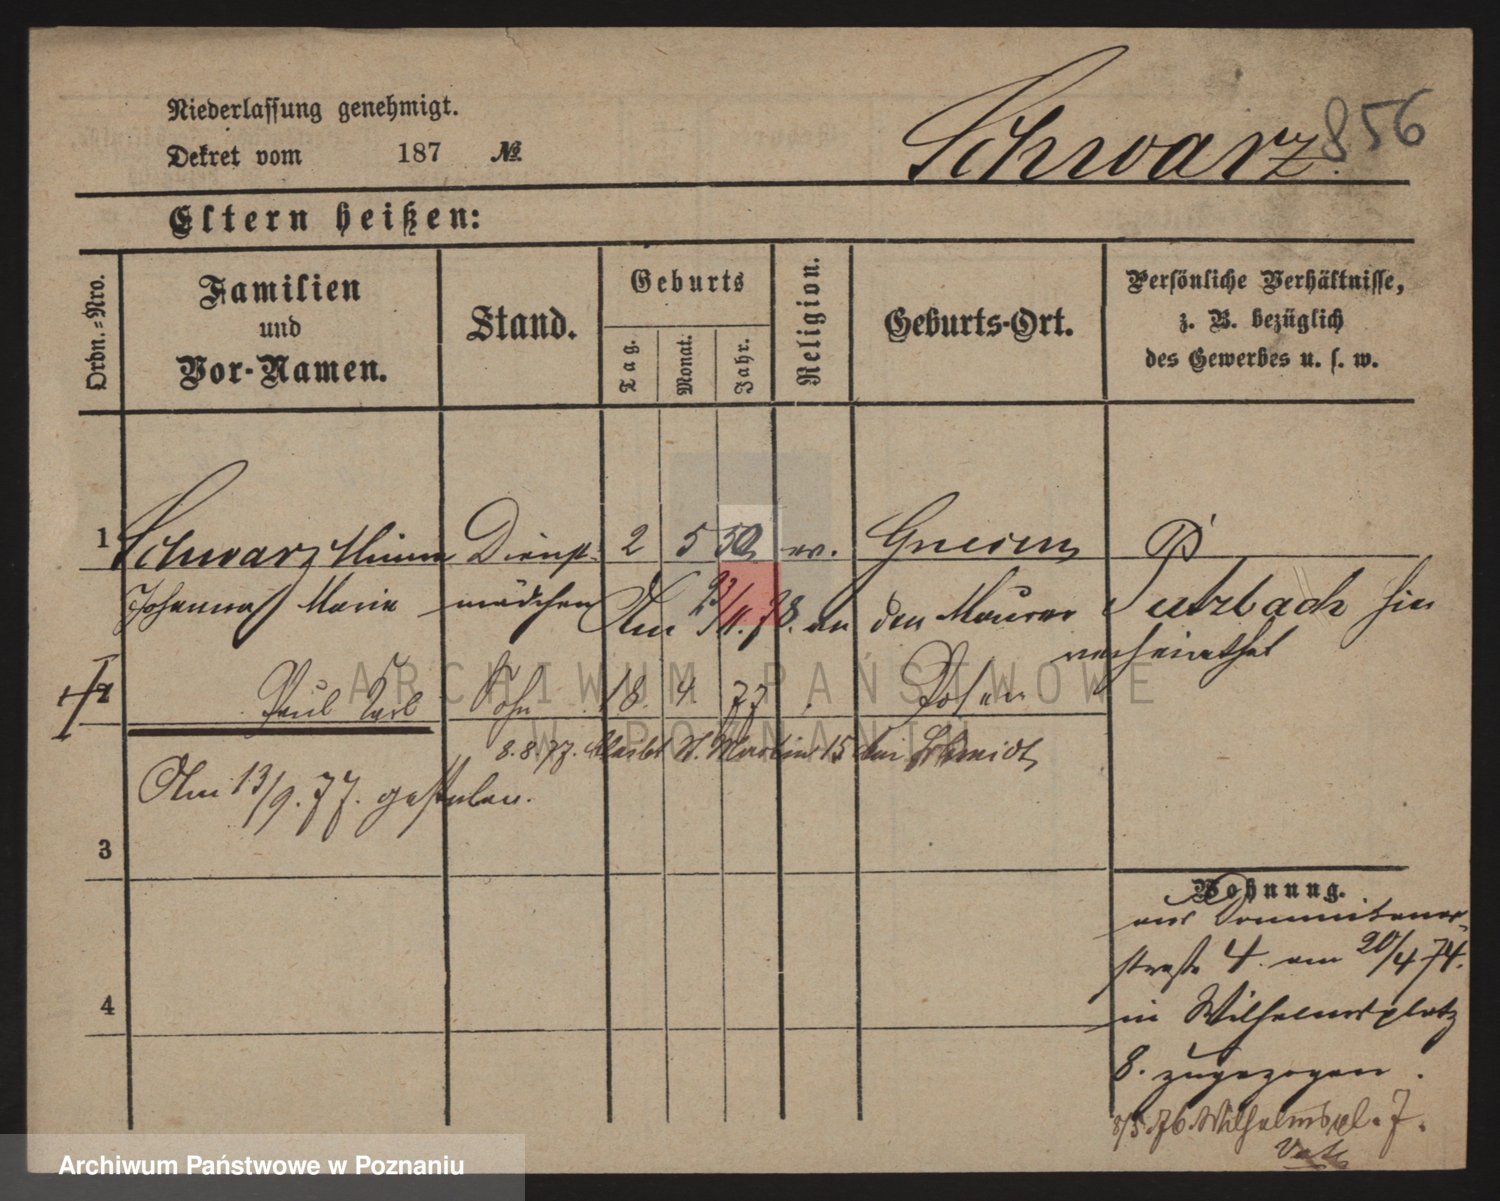 Niederlassung genehmigt.
Dekret vom 187 №
Schwarz. 856
Eltern heißen:
Ordn.=Nro.
Familien
und
Vor-Namen.
Stand.
Geburts
Tag.
Monat.
Jahr.
Religion.
Geburts-Ort.
Persönliche Verhältnisse,
z. B. bezüglich
des Gewerbes u. s. w.
1 Schwarz Dienst- 2 5 50 ev. Gnesen
Johanna Marie mädchen Am 23/11.78. an den Maurer Putzbach hier
verheirathet
2 Paul Karl Sohn 18. 4. 77 Posen
8.8.77. St. Martin 15 bei Schmidt
Am 13/9.77. gestorben.
3
4
Wohnung.
aus Dominikaner-
straße 4. am 20/4 74.
in Wilhelmsplatz
8. zugezogen.
8/5.76. Wilhelmspl. 7.
ARCHIWUM PAŃSTWOWE
W POZNANIU
Archiwum Państwowe w Poznaniu